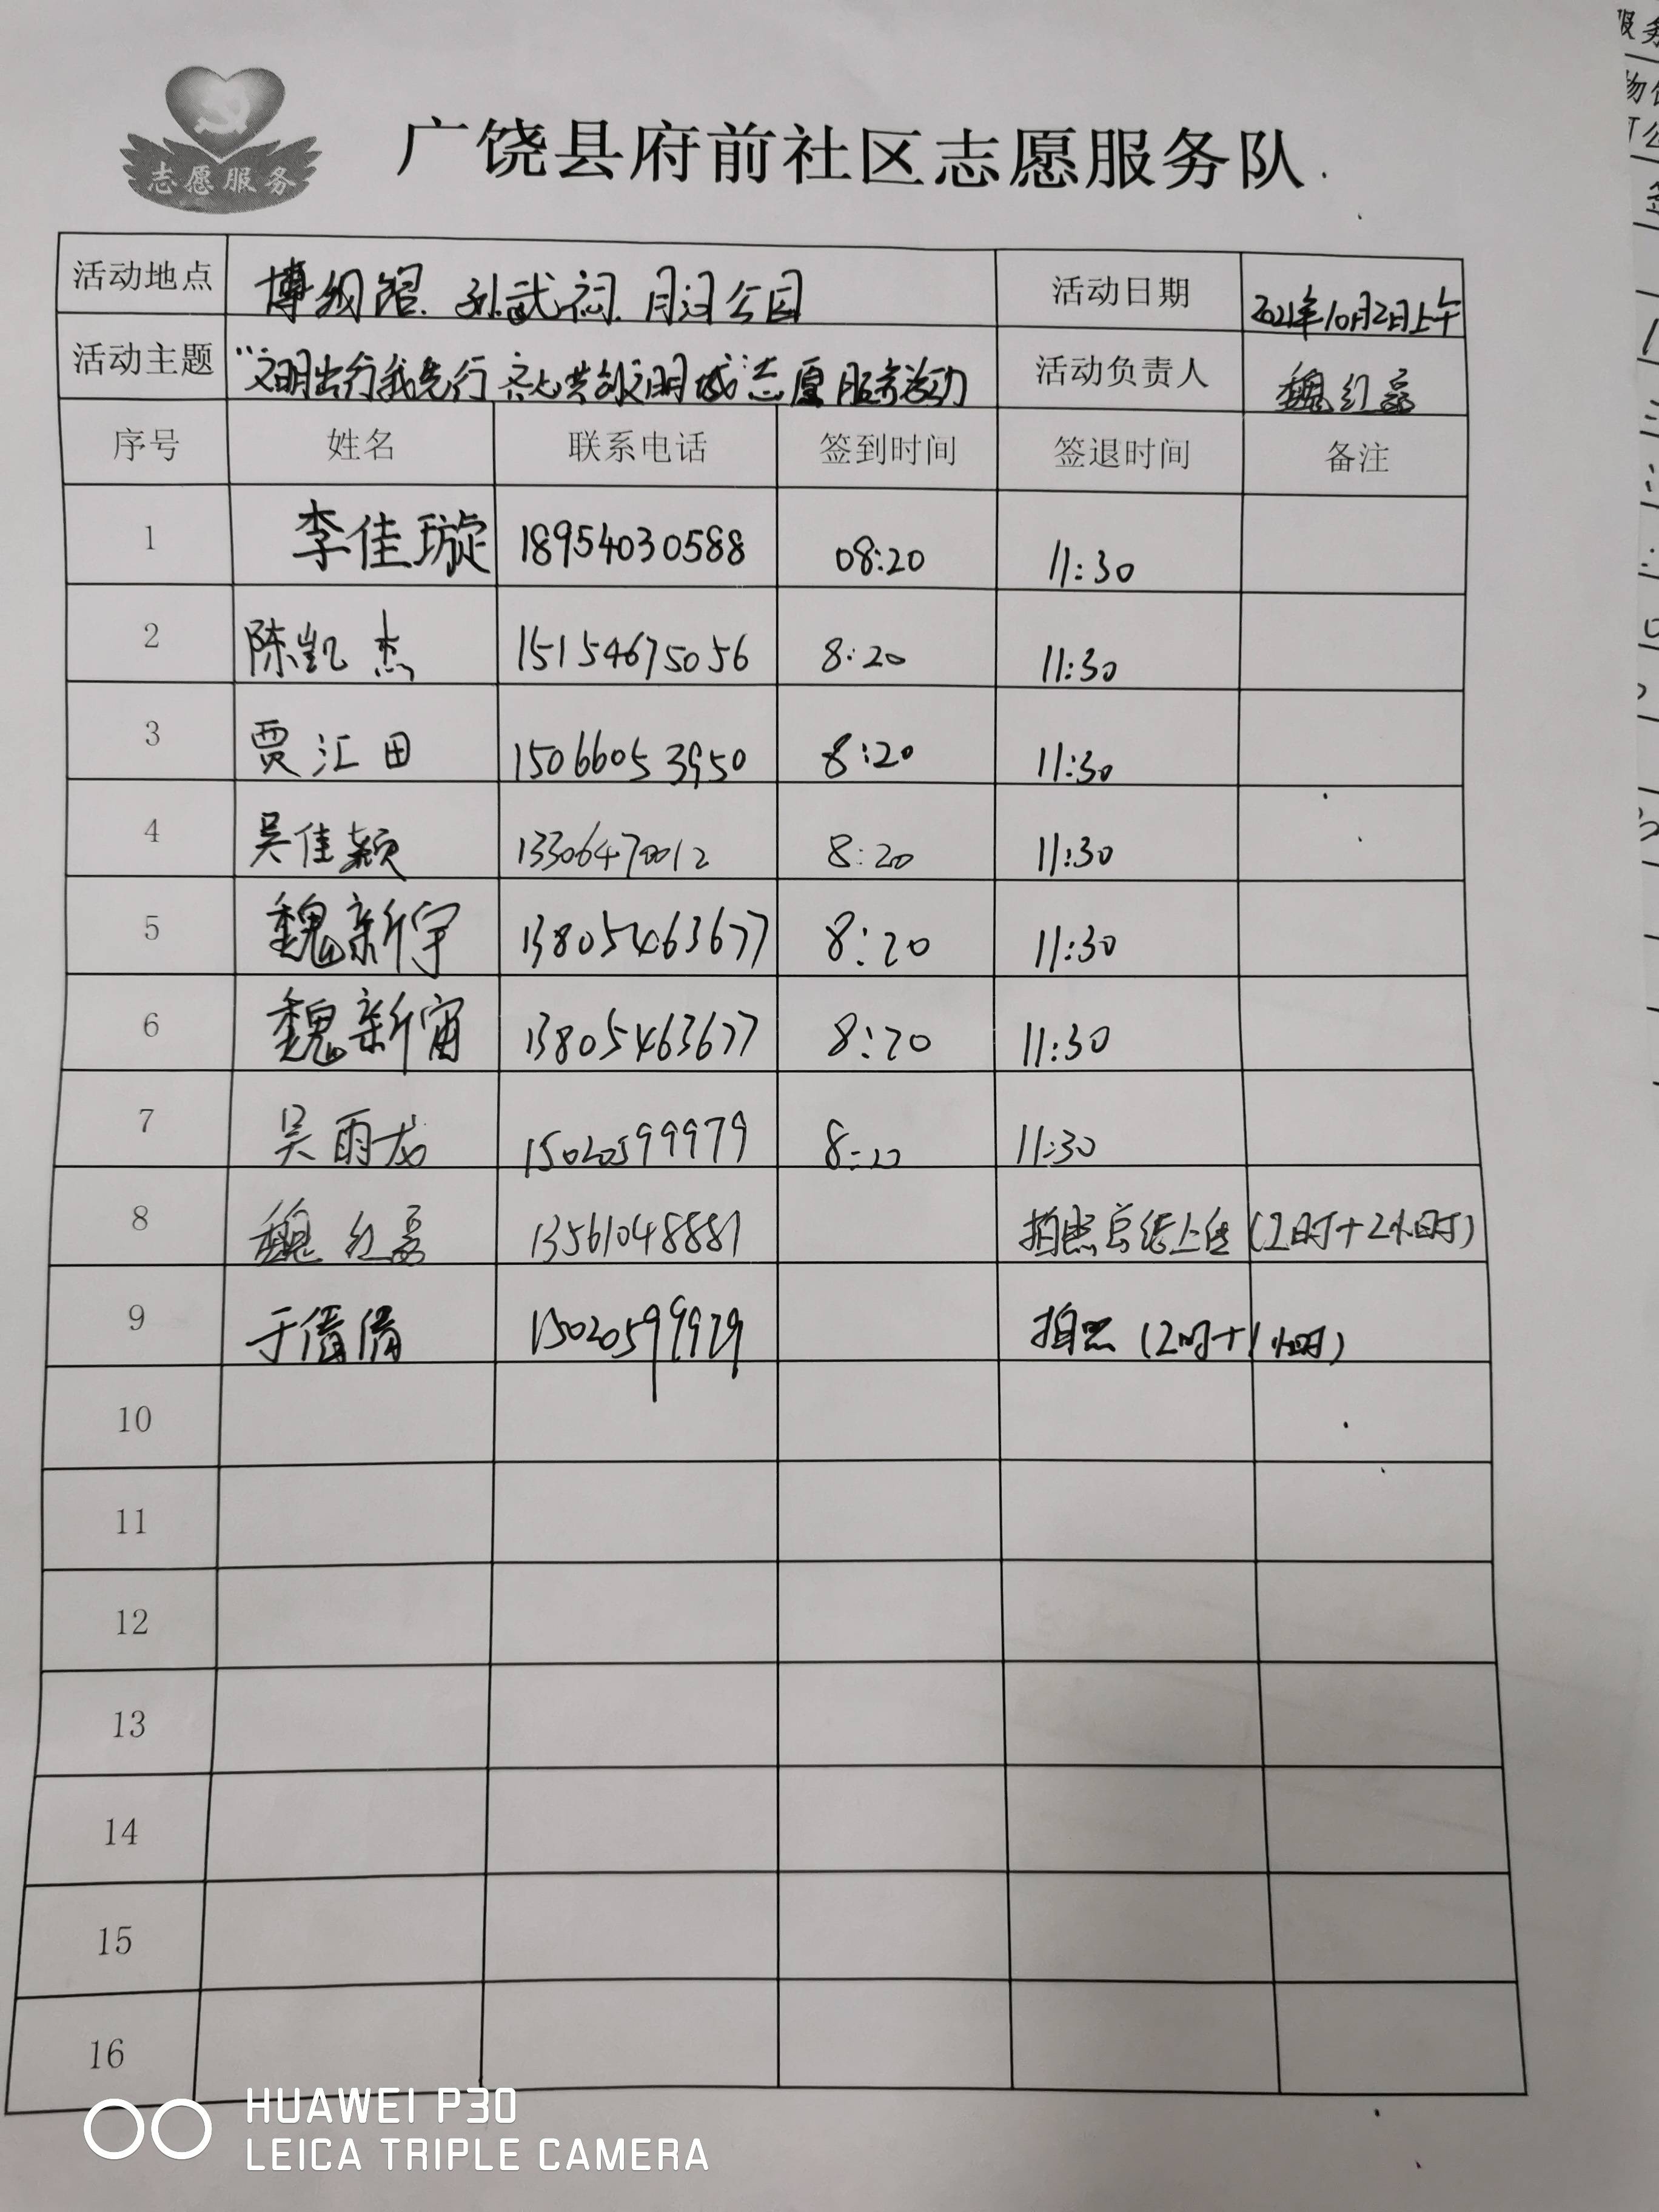 志愿服务
广饶县府前社区志愿服务队
活动地点 博物馆、孙武祠、月河公园 活动日期 2021年10月2日上午
活动主题 “文明出行我先行 齐心共创文明城”志愿服务活动 活动负责人 魏红磊
序号 姓名 联系电话 签到时间 签退时间 备注
1 李佳璇 18954030588 08:20 11:30
2 陈凯杰 15154675056 8:20 11:30
3 贾汇田 15066053950 8:20 11:30
4 吴佳颖 13306470012 8:20 11:30
5 魏新宇 13805463677 8:20 11:30
6 魏新宙 13805463677 8:20 11:30
7 吴雨龙 15020599979 8:20 11:30
8 魏红磊 13561048881 拍照总结上传 (2时+2小时)
9 于倩倩 15020599979 拍照 (2时+1小时)
10
11
12
13
14
15
16
HUAWEI P30
LEICA TRIPLE CAMERA